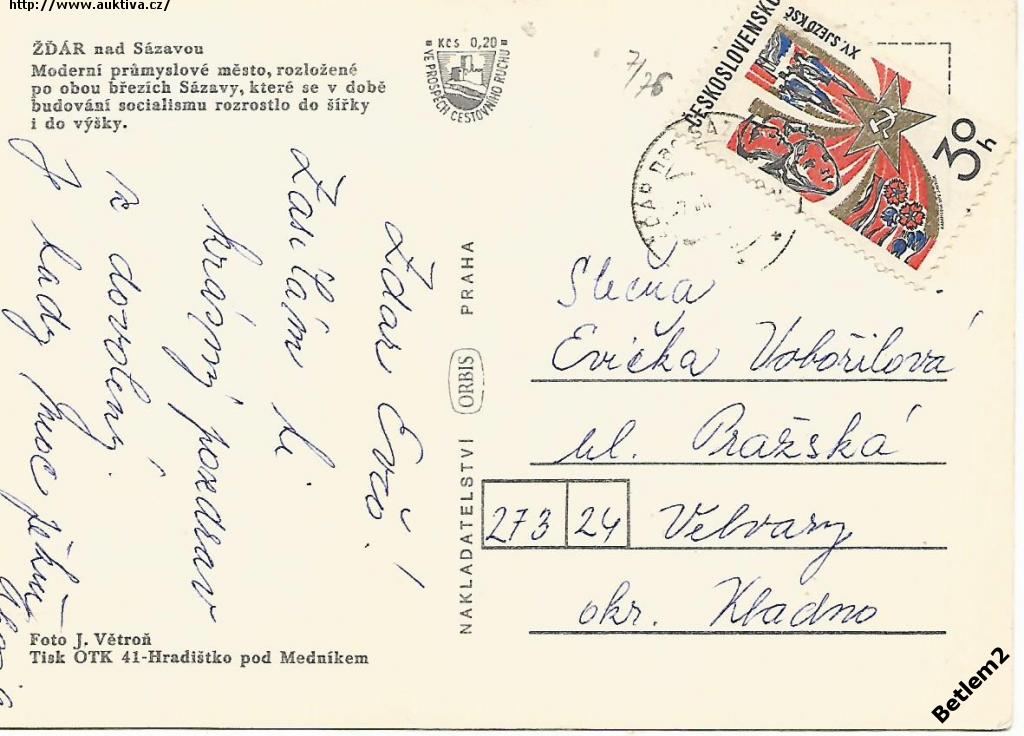 http://www.auktiva.cz/
ŽĎÁR nad Sázavou
Moderní průmyslové město, rozložené
po obou březích Sázavy, které se v době
budování socialismu rozrostlo do šířky
i do výšky.
Kčs 0,20
VE PROSPĚCH CESTOVNÍHO RUCHU
7/76
ČESKOSLOVENSKO
XV. SJEZD KSČ
30 h
Ždar Evčo!
Zasílám ti
krásný pozdrav
z dovolený.
Je tady moc
NAKLADATELSTVÍ ORBIS PRAHA
Slečna
Evička Vobořilová
ul. Pražská
273 24 Velvary
okr. Kladno
Foto J. Větroň
Tisk OTK 41-Hradištko pod Medníkem
Betlem2